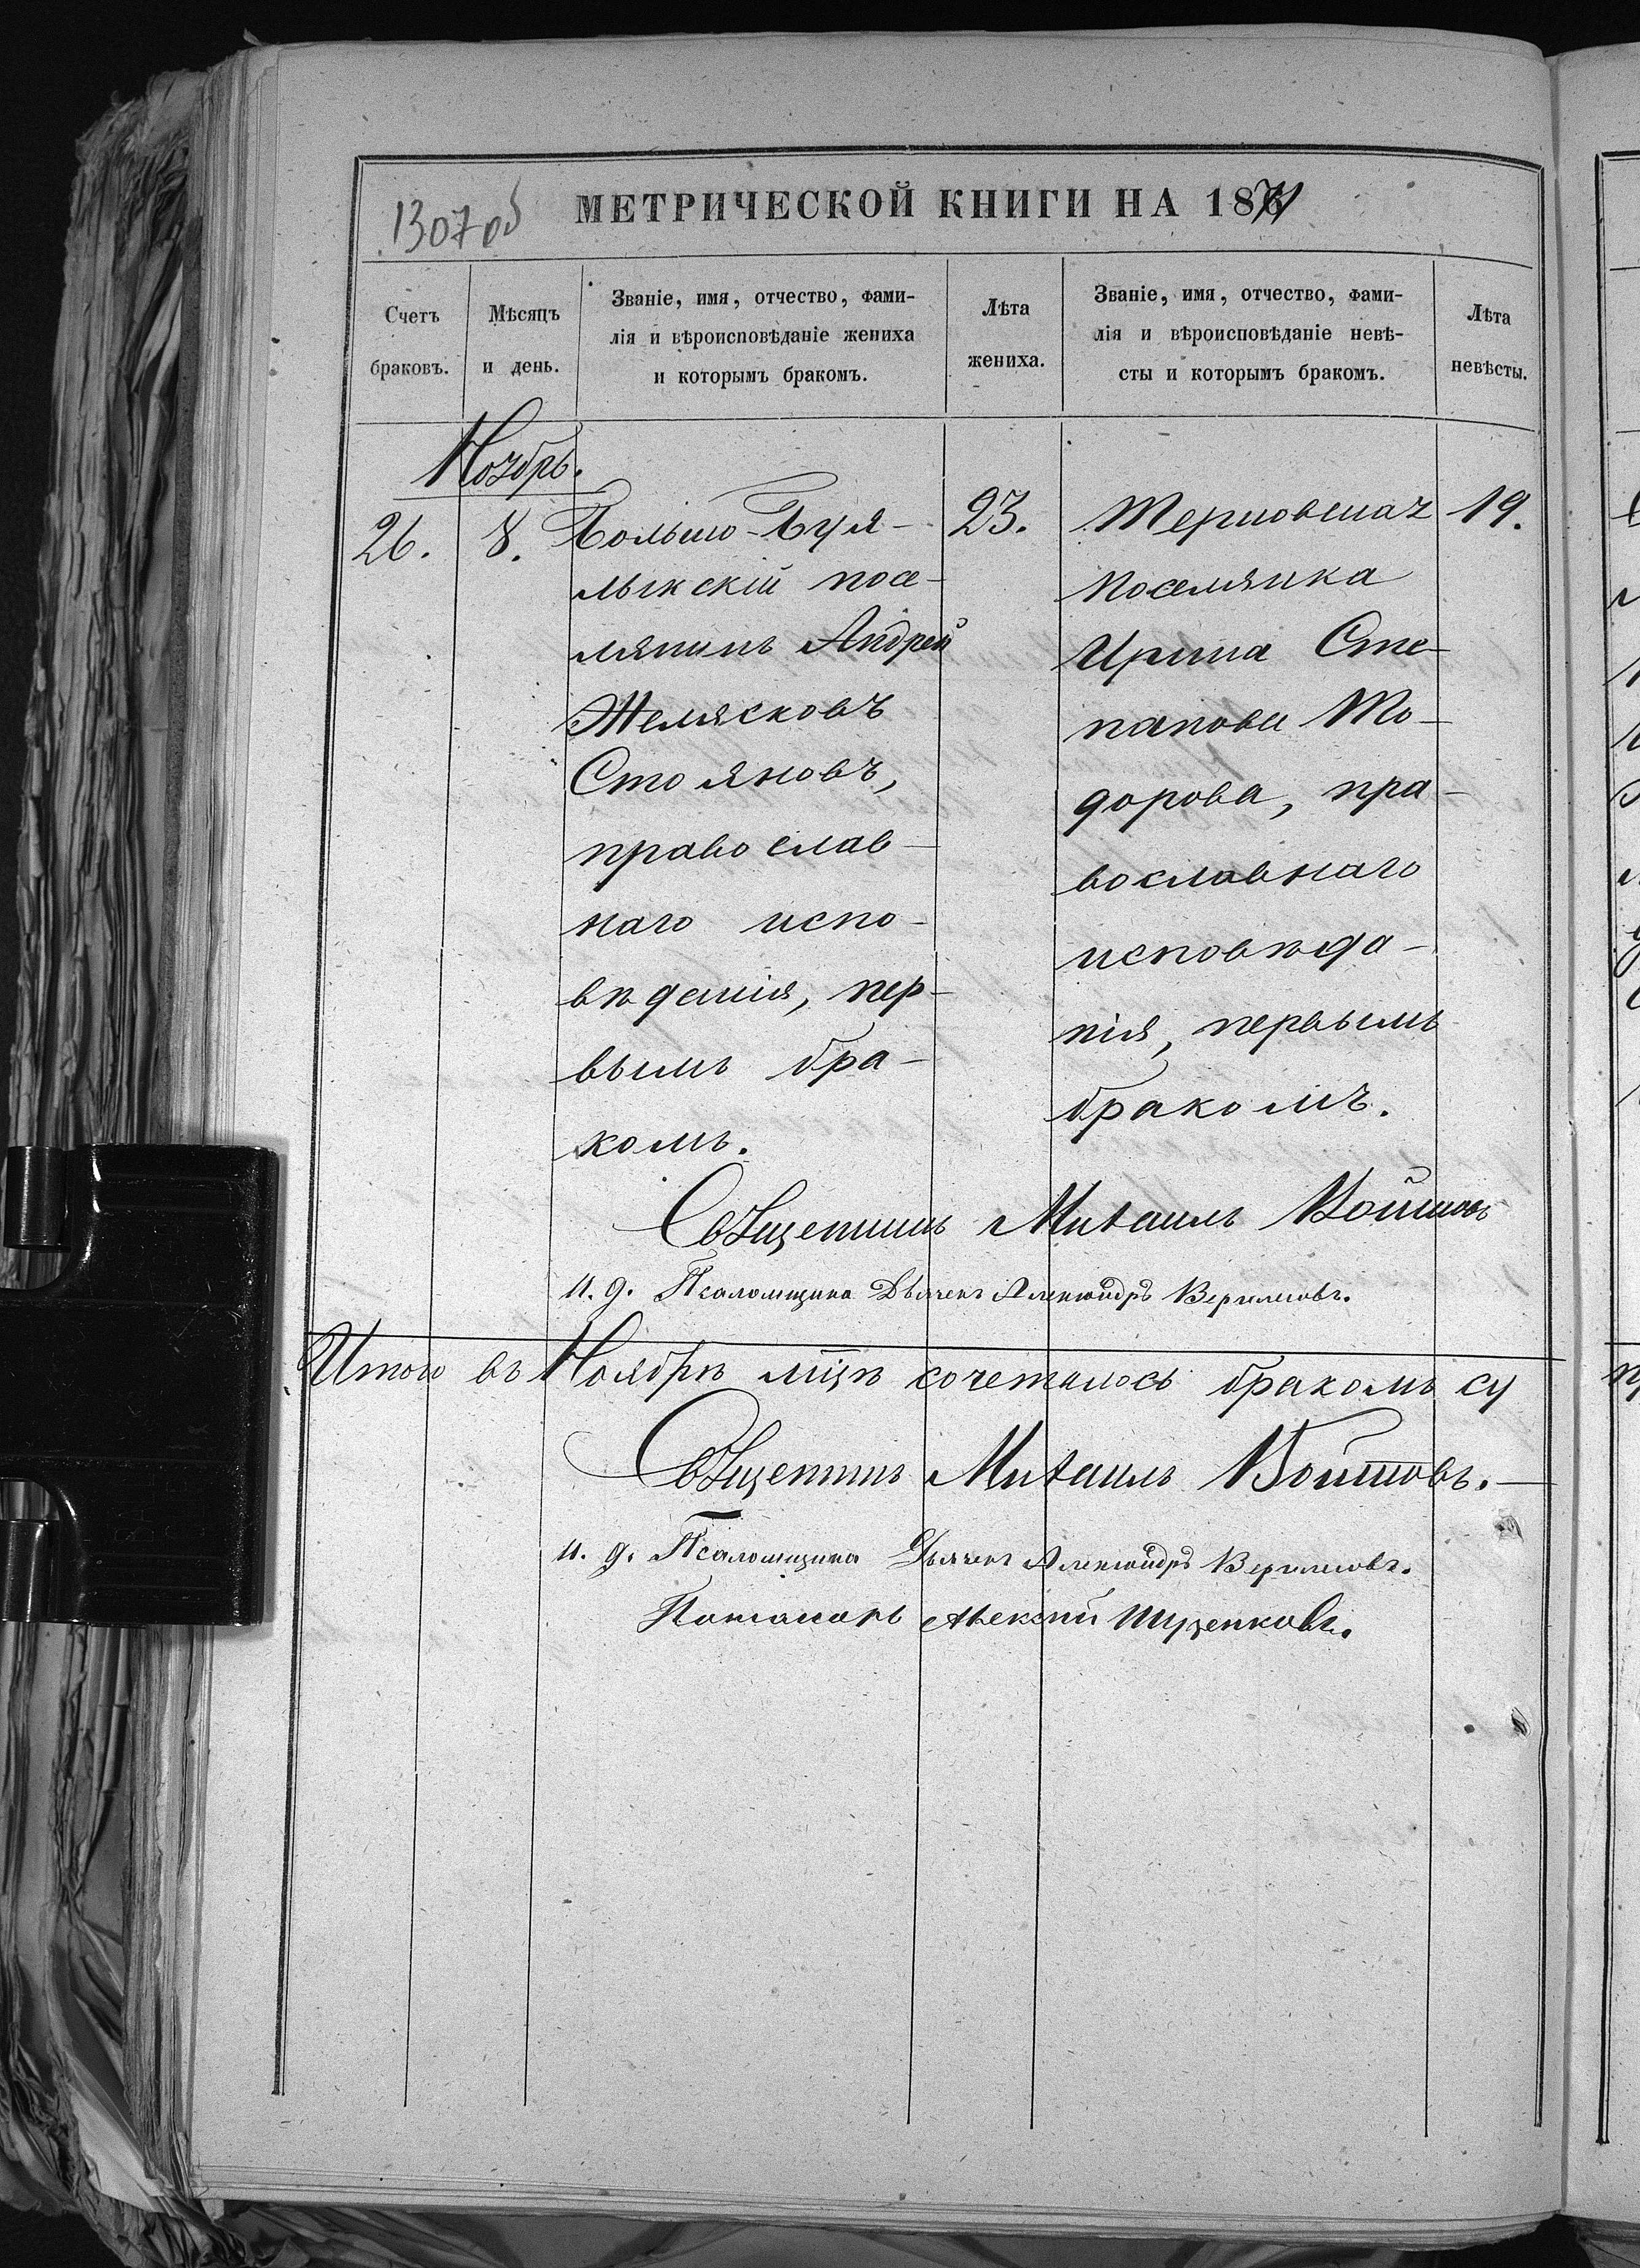 1307об
МЕТРИЧЕСКОЙ КНИГИ НА 1871
Счетъ браковъ.
Мѣсяцъ и день.
Званіе, имя, отчество, фами-
лія и вѣроисповѣданіе жениха
и которымъ бракомъ.
Лѣта жениха.
Званіе, имя, отчество, фами-
лія и вѣроисповѣданіе невѣ-
сты и которымъ бракомъ.
Лѣта невѣсты.
Ноябрь.
26.
8.
Большо-Буя-
лыкскій посе-
лянинъ Андрей
Желясковъ
Стояновъ,
православ-
наго испо-
вѣденія, пер-
вымъ бра-
комъ.
23.
Терновская
поселянка
Ирина Сте-
панова То-
дорова, пра-
вославнаго
исповѣда-
нія, первымъ
бракомъ.
19.
Священникъ Михаилъ Войтовъ
И. д. Псаломщика Дьячекъ Александръ
Итого въ Ноябрѣ мцѣ сочеталось бракомъ су
Священникъ Михаилъ Войтовъ.
И. д. Псаломщика Дьячекъ Александръ
Пономарь Алексѣй